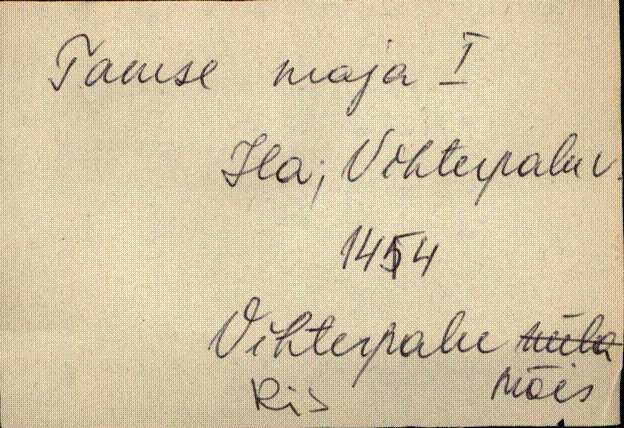 Tamse maja I
Jla; Vihterpalu v.
1454
Vihterpalu küla
Ris mõis